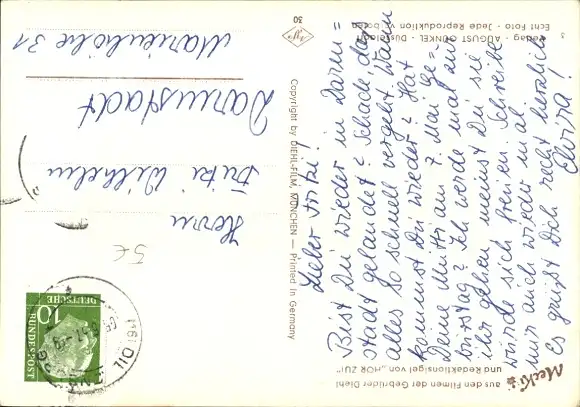 Mecki
aus den Filmen der Gebrüder Diehl
und Redaktionsigel von „HÖR ZU!"
Lieber Fritzi!
Bist Du wieder in Darm=
stadt gelandet? Schade, daß
alles so schnell vergeht. Wann
kommst Du wieder? Hat
Deine Mutti am 7. Mai Ge=
burtstag? Ich werde mal zu
ihr gehen, meinst Du sie
würde sich freuen. Schreibe
mir auch wieder mal.
Es grüßt Dich recht herzlich
Elvira!
Copyright by DIEHL-FILM, MÜNCHEN — Printed in Germany
Verlag - AUGUST GUNKEL - Düsseldorf
Echt Foto - Jede Reproduktion verboten
30
DEUTSCHE
BUNDESPOST
10
5 €
Herrn
Fritzi Wilhelm
Darmstadt
Marienhöhe 31